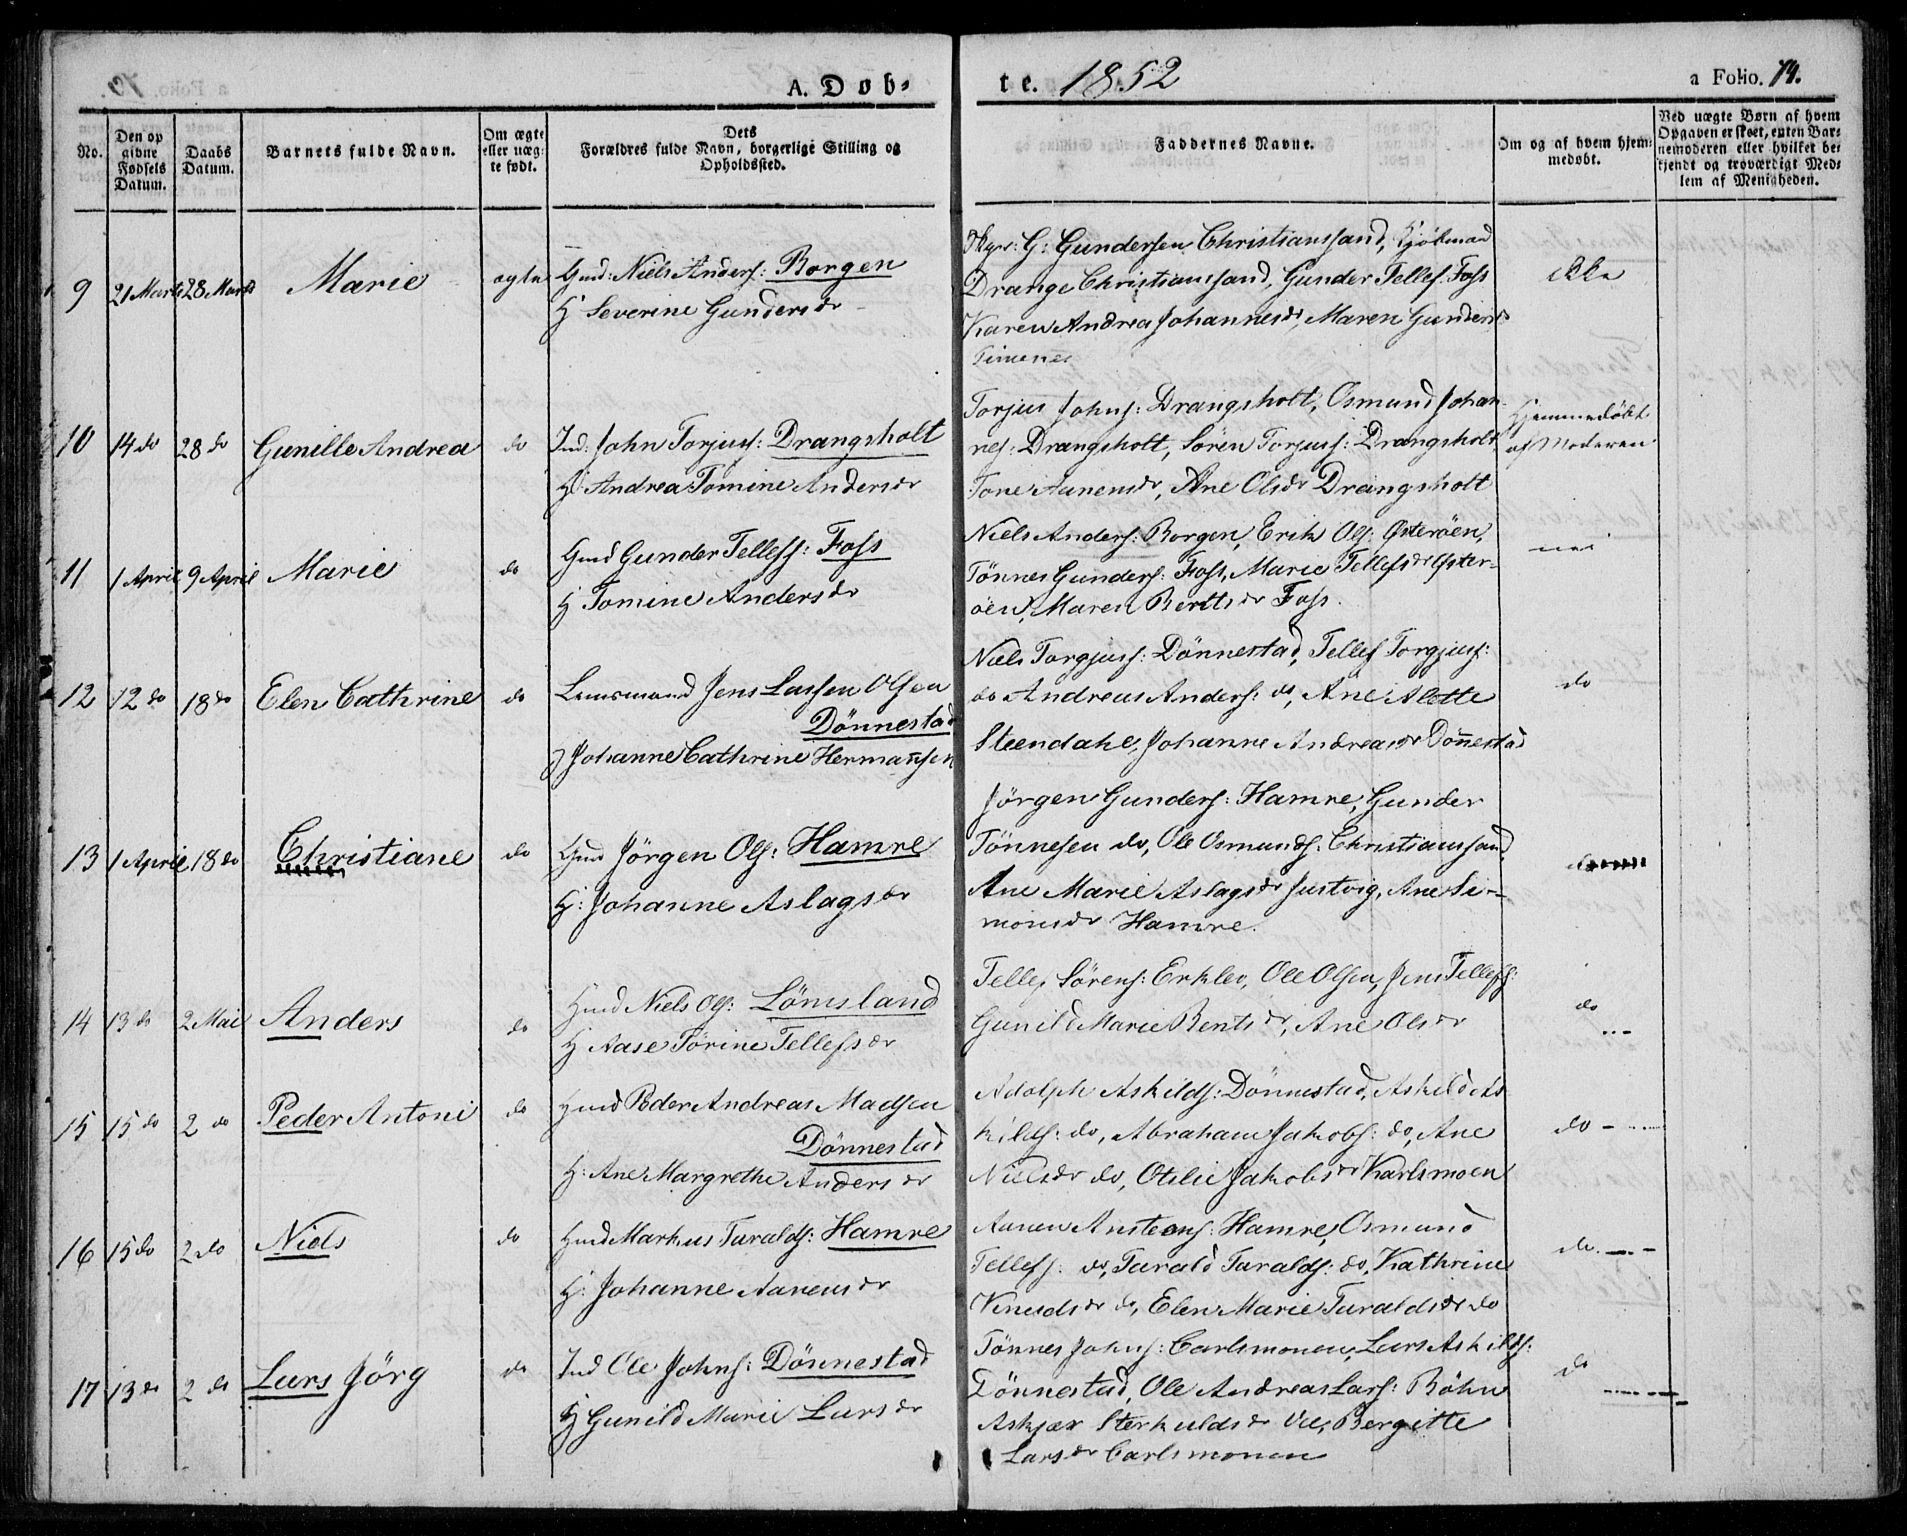 A. Döb-
te. 1852
a Folio. 74.
No.
Den op
givne
Fødsels
Datum.
Daabs
Datum.
Barnets fulde Navn.
Om ægte
eller uæg-
te født.
Dets
Forældres fulde Navn, borgerlige Stilling og
Opholdssted.
Faddernes Navne.
Om og af hvem hjem-
medøbt.
Ved uægte Børn af hvem
Opgaven er skeet, enten Bar-
nemoderen eller hvilket be-
kjendt og troværdigt Med-
lem af Menigheden.
9 21 Marts 28 Marts Marie ægte Gmd: Niels Anders: Borgen
H Severine Gundersdr
G: Gundersen Christianssand, Kjöbmand
Drange Christianssand, Gunder Tellef: Foss
Karen Andrea Johannesdr, Maren Gundersdr
Timenes
ikke
10 14 do 28 do Gunille Andrea do Ind: John Torjuss: Drangsholt
H Andrea Tomine Andersdr
Torjus Johns: Drangsholt, Osmund Johan-
nes: Drangsholt, Sören Torjuss: Drangsholt
Tone Aanensdr, Ane Olsdr Drangsholt
Hjemmedöbt
af Moderen
11 1 April 9 April Marie do Gmd Gunder Tellefs: Foss
H Tomine Andersdr
Niels Anders: Borgen, Erik Ols: Østeröen,
Tönnes Gunders: Foss, Marie Tellefsdr Øster-
öen, Maren Berthsdr Foss.
nei
12 12 do 18 do Elen Cathrine do Lensmand Jens Lassen Olsen
Dönnestad
H Johanne Cathrine Hermansen
Niels Torgjuss: Dönnestad, Tellef Torgjuss:
do Andreas Anders: do, Ane Alette
Steendahl, Johanne Andreasdr Dönnestad
do
13 1 April 18 do Christiane do Gmd Jörgen Ols: Hamre
H: Johanne Aslagsdr
Jörgen Gunders: Hamre, Gunder
Tönnesen do, Ole Osmunds: Christianssand,
Ane Marie Aslagsdr Justvig, Ane Si-
monsdr Hamre.
do
14 13 do 2 Mai Anders do Hmd Niels Ols: Lömsland
H Aase Törine Tellefsdr
Tellef Sörens: Erklev, Ole Olsen, Jens Tellefs:
Gunild Marie Bentsdr, Ane Olsdr
do
15 15 do 2 do Peder Antoni do Hmd Peder Andreas Madsen
Dönnestad
H: Ane Margrethe Andersdr
Adolph Askilds: Dönnestad, Askild As
kilds: do, Abraham Jakobs: do, Ane
Nielsdr do, Otilie Jakobsdr Karlsmoen
do
16 15 do 2 do Niels do Hmd Markus Taralds: Hamre
H: Johanne Aanensdr
Aanen Ansteens: Hamre, Osmund
Tellefs: do, Tarald Taralds: do, Kathrine
Knudsdr do, Elen Marie Taraldsdr do
do.
17 13 do 2 do Lars Jörg do Ind Ole Johns: Dönnestad
H Gunild Marie Larsdr
Tönnes Johns: Carlsmonen, Lars Askilds:
Dönnestad, Ole Andreas Lars: Böhn
Askjær Sterkuldsdr Bergitte
Larsdr Carlsmonen
do